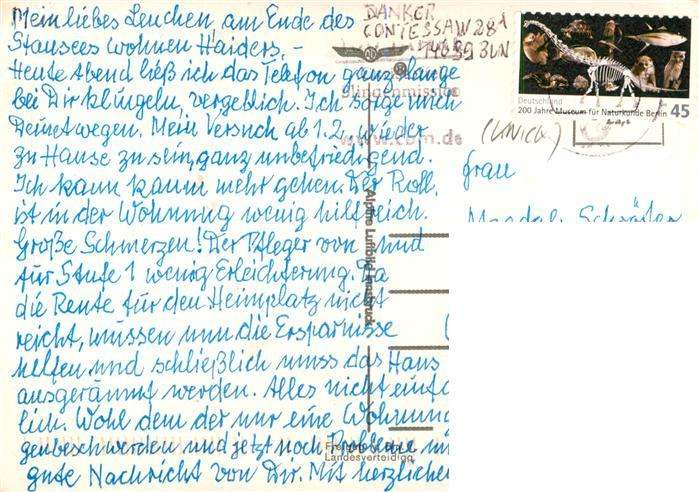 Mein liebes Lenchen, am Ende des
Stausees wohnen Haiders. –
Heute Abend ließ ich das Telefon ganz lange
bei Dir klingeln, vergeblich. Ich sorge mich
Deinetwegen. Mein Versuch ab 1.2. wieder
zu Hause zu sein, ganz unbefriedigend.
Ich kann kaum mehr gehen. Der Roll.
ist in der Wohnung wenig hilfreich.
Große Schmerzen! Der Pfleger von und
für Stufe 1 wenig Erleichterung. Da
die Rente für den Heimplatz nicht
reicht, müssen nun die Ersparnisse
helfen und schließlich muss das Haus
ausgeräumt werden. Alles nicht einfa
lich. Wohl dem der nur eine Wohnung
genbeschwerden und jetzt noch Probleme mi
gute Nachricht von Dir. Mit herzliche
DANKER
CONTESSAW 281
14699 BLN
lingenmission
www.cbm.de
Deutschland
200 Jahre Museum für Naturkunde Berlin 45
Frau
Alpine Luftbild Innsbruck
Landesverteidigg.